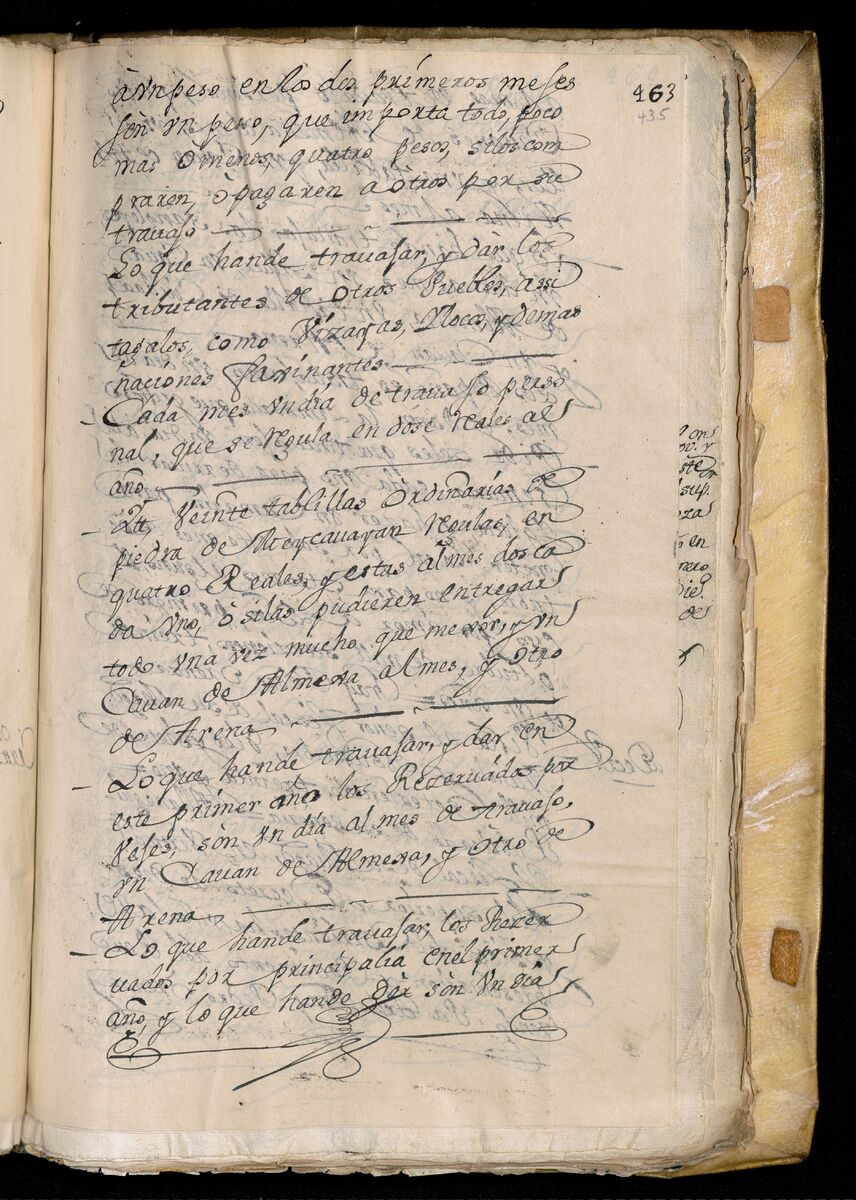 463
435
à vn peso en los dos primeros meses
son vn peso, que importa todo, poco
mas ò menos, quatro pesos, si los com
praren, ò pagaren a òtros por su
travaso
Lo que hande travasar, y dàr los
tributantes de òtros Puebles, assi
tagalos, como Vizayas, Ylocos, y demas
naciones
Cada mes vn dia de travaso perso
nal, que se regula en dose reales al
año
Ytt, Veinte tablillas Ordinarias de
piedra de Meycavayan regulas, en
quatro Reales, y estas al mes dos ca
da vno, ò silas pudieren entregar
todo vna vez mucho que mexor, y vn
Cavan de Almexa al mes, y òtro
de Arena
Lo que hande travasar, y dar en
este primer año los Rezervàdos por
Veses, sòn vn dia al mes de travaso,
vn Cavan de Almexa, y òtro de
Arena
Lo que hande travasar, los Rezer
uados por principalia en el primer
año, y lo que hande dàr sòn vn dia